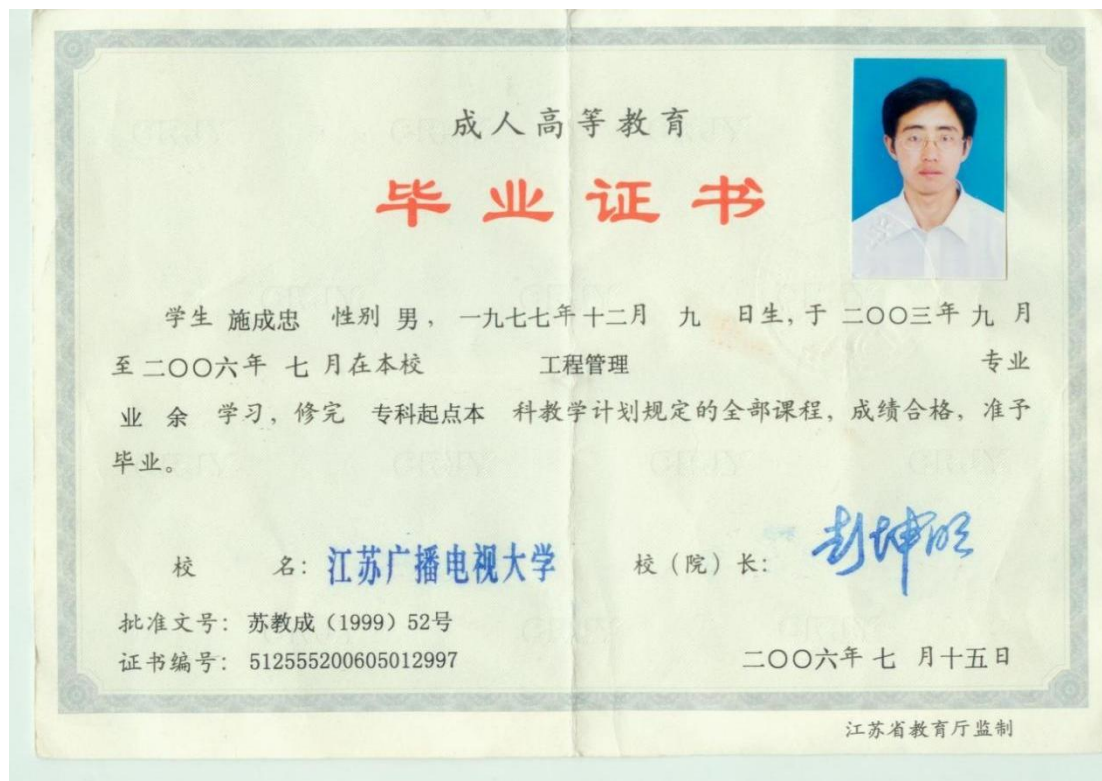 成人高等教育
毕业证书
学生 施成忠 性别 男，一九七七年十二月 九 日生，于 二〇〇三年 九 月
至二〇〇六年 七 月在本校 工程管理 专业
业 余 学习，修完 专科起点本 科教学计划规定的全部课程，成绩合格，准予
毕业。
校 名：江苏广播电视大学 校（院）长：彭坤明
批准文号：苏教成（1999）52号
证书编号：512555200605012997 二〇〇六年 七 月十五日
江苏省教育厅监制